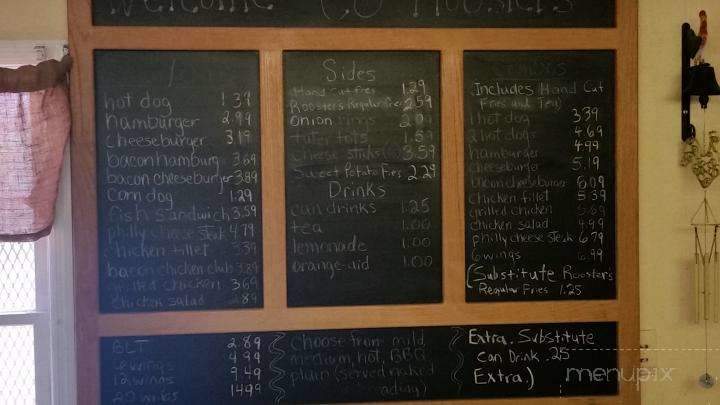 Welcome to Roosters
hot dog 1.39
hamburger 2.99
cheeseburger 3.19
bacon hamburg 3.69
bacon cheeseburger 3.89
corn dog 1.29
fish sandwich 3.59
philly cheese steak 4.79
chicken fillet 3.39
bacon chicken club 3.89
grilled chicken 3.69
chicken salad 2.89
BLT 2.89
6 wings 4.99
12 wings 9.49
20 wings 14.99
Sides
Hand cut fries 1.29
Roosters Regular Fries 2.59
onion rings
tater tots 1.59
cheese sticks 3.59
Sweet Potato Fries 2.29
Drinks
can drinks 1.25
tea 1.00
lemonade 1.00
orange-aid 1.00
choose from mild,
medium, hot, BBQ,
plain (served naked
Includes Hand Cut
Fries and Tea)
1 hot dog 3.39
2 hot dogs 4.69
hamburger 4.99
cheeseburger 5.19
bacon cheeseburger 6.09
chicken fillet 5.39
grilled chicken 5.69
chicken salad 4.99
philly cheese steak 6.79
6 wings 6.99
(Substitute Roosters
Regular Fries 1.25
Extra. Substitute
Can Drink .25
Extra.)
menupix